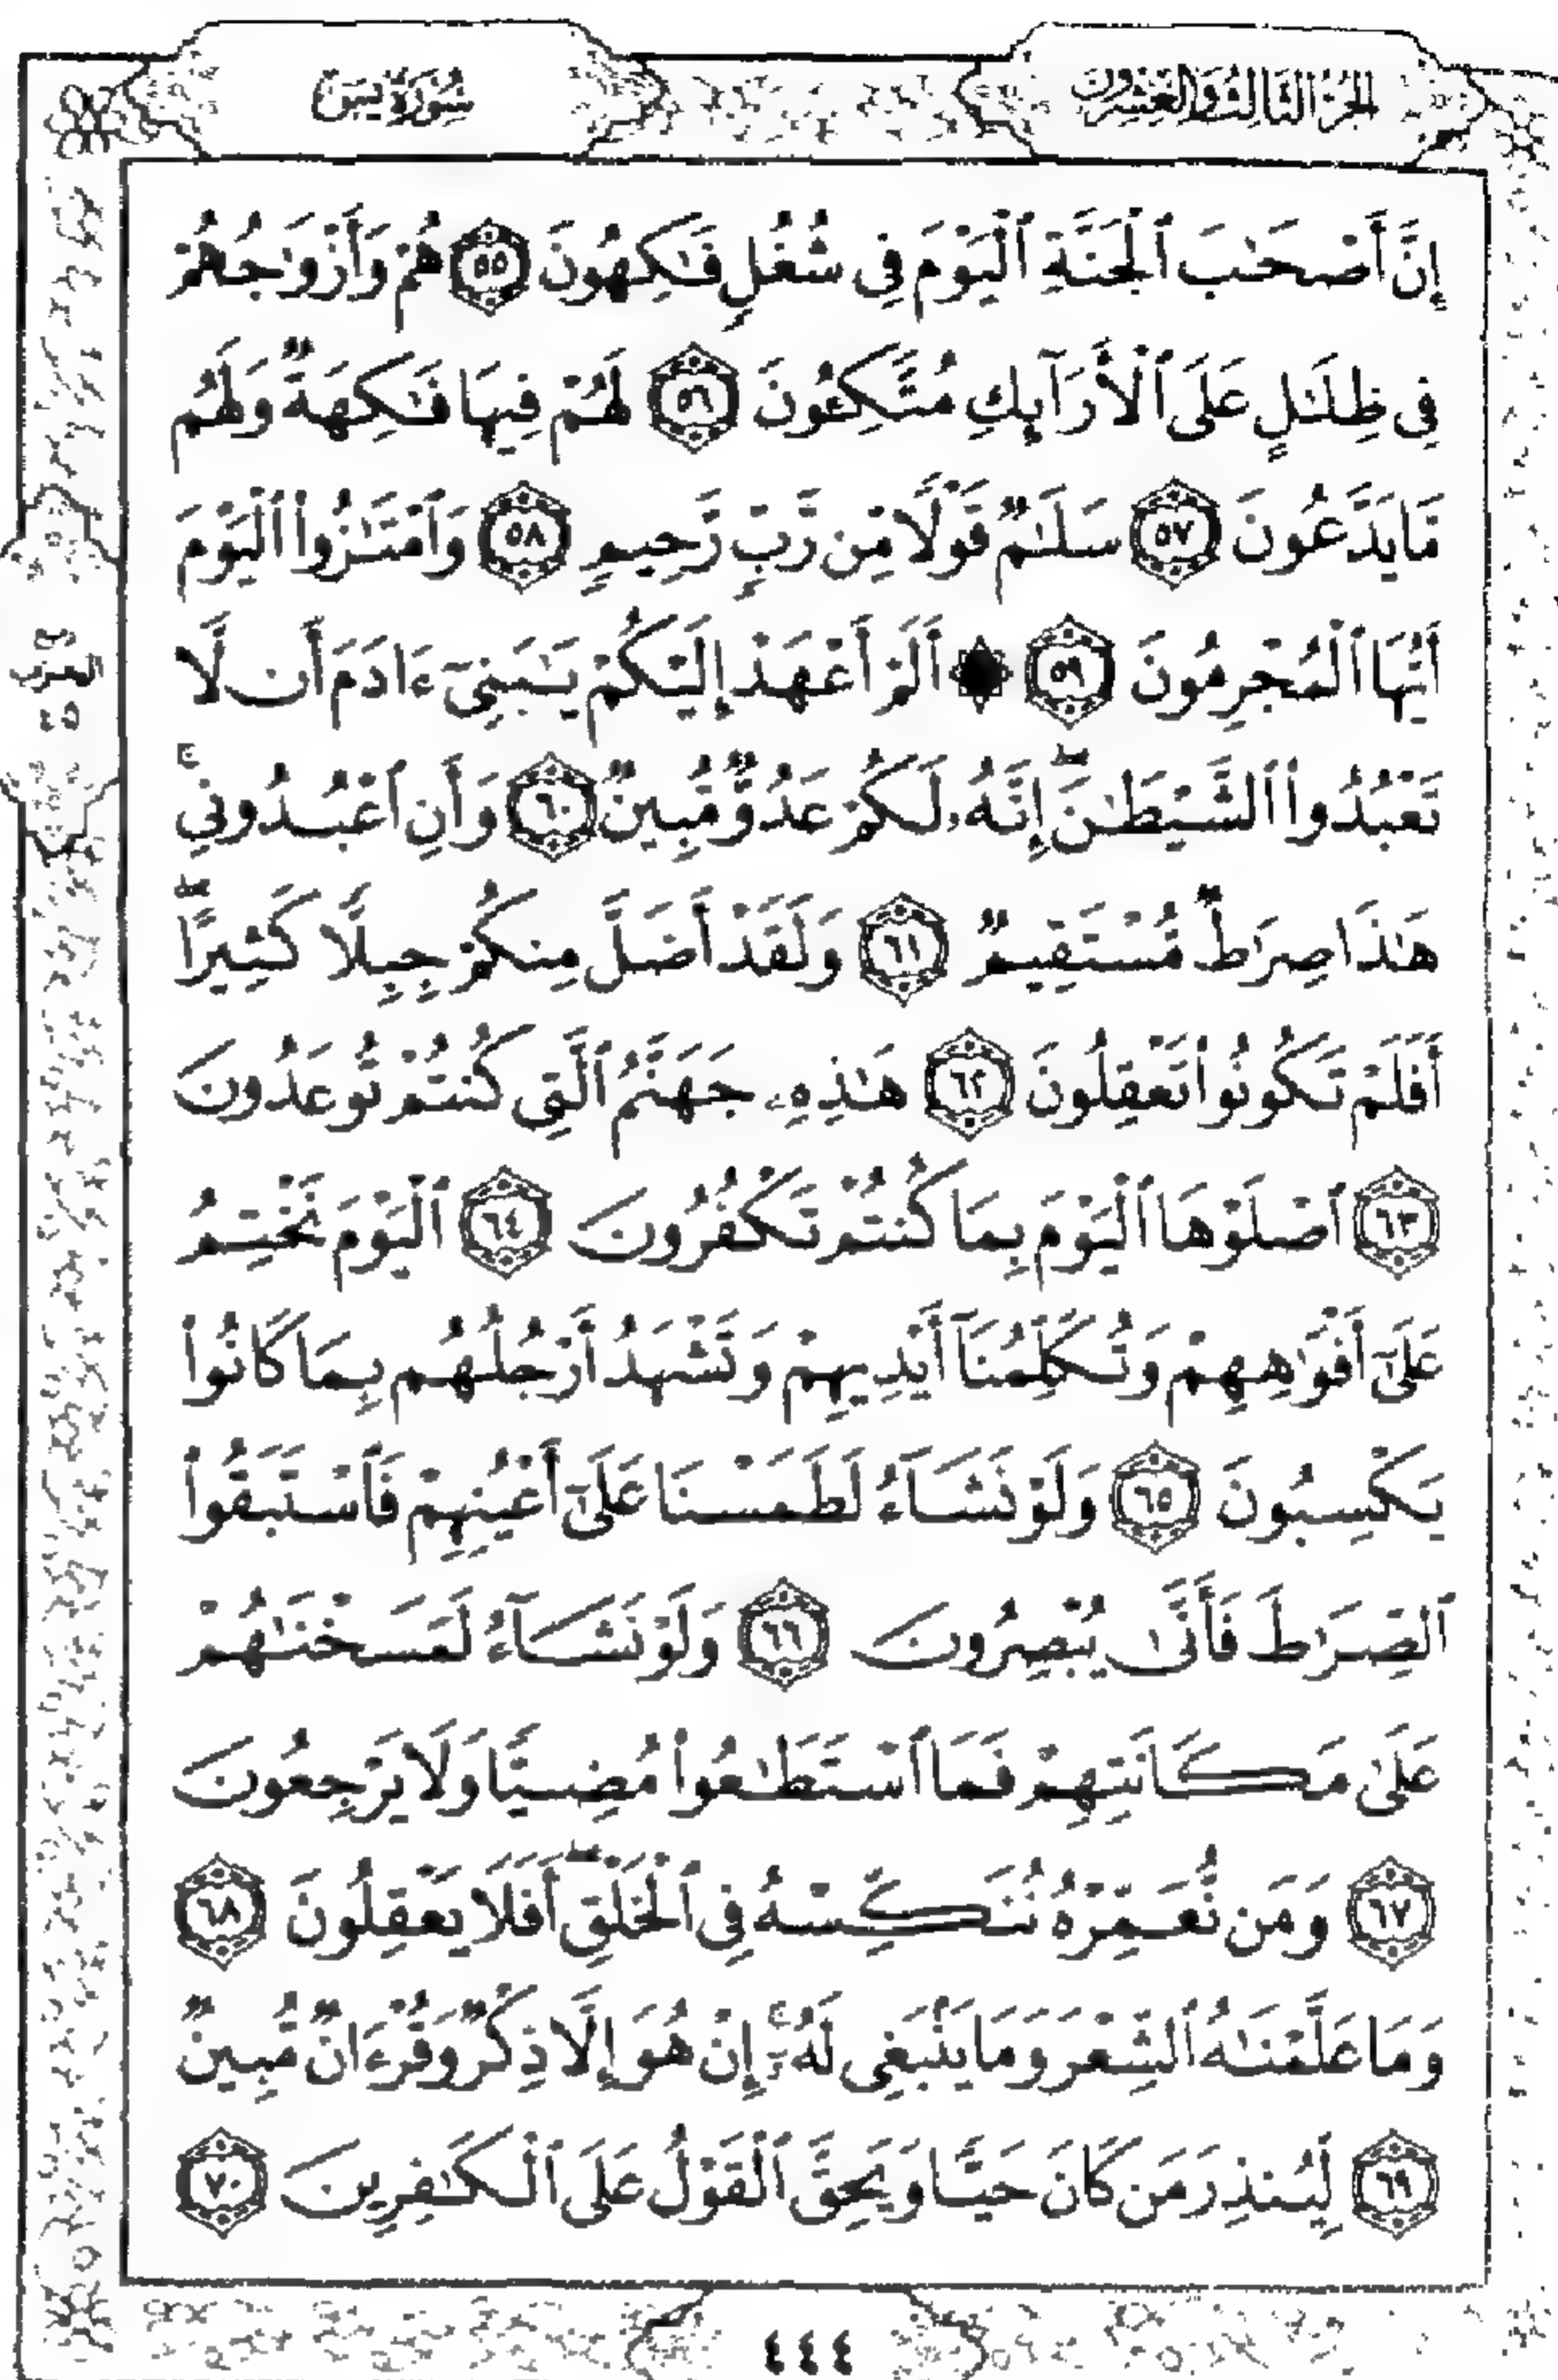 الجزء الثالث والعشرون
سُورَةُ يسٓ
إِنَّ أَصْحَٰبَ ٱلْجَنَّةِ ٱلْيَوْمَ فِى شُغُلٍ فَٰكِهُونَ ۝٥٥ هُمْ وَأَزْوَٰجُهُمْ
فِى ظِلَٰلٍ عَلَى ٱلْأَرَآئِكِ مُتَّكِـُٔونَ ۝٥٦ لَهُمْ فِيهَا فَٰكِهَةٌ وَلَهُم
مَّا يَدَّعُونَ ۝٥٧ سَلَٰمٌ قَوْلًا مِّن رَّبٍّ رَّحِيمٍ ۝٥٨ وَٱمْتَٰزُوا۟ ٱلْيَوْمَ
أَيُّهَا ٱلْمُجْرِمُونَ ۝٥٩ ۞ أَلَمْ أَعْهَدْ إِلَيْكُمْ يَٰبَنِىٓ ءَادَمَ أَن لَّا
تَعْبُدُوا۟ ٱلشَّيْطَٰنَۖ إِنَّهُۥ لَكُمْ عَدُوٌّ مُّبِينٌ ۝٦٠ وَأَنِ ٱعْبُدُونِىۚ
هَٰذَا صِرَٰطٌ مُّسْتَقِيمٌ ۝٦١ وَلَقَدْ أَضَلَّ مِنكُمْ جِبِلًّا كَثِيرًاۖ
أَفَلَمْ تَكُونُوا۟ تَعْقِلُونَ ۝٦٢ هَٰذِهِۦ جَهَنَّمُ ٱلَّتِى كُنتُمْ تُوعَدُونَ
۝٦٣ ٱصْلَوْهَا ٱلْيَوْمَ بِمَا كُنتُمْ تَكْفُرُونَ ۝٦٤ ٱلْيَوْمَ نَخْتِمُ
عَلَىٰٓ أَفْوَٰهِهِمْ وَتُكَلِّمُنَآ أَيْدِيهِمْ وَتَشْهَدُ أَرْجُلُهُم بِمَا كَانُوا۟
يَكْسِبُونَ ۝٦٥ وَلَوْ نَشَآءُ لَطَمَسْنَا عَلَىٰٓ أَعْيُنِهِمْ فَٱسْتَبَقُوا۟
ٱلصِّرَٰطَ فَأَنَّىٰ يُبْصِرُونَ ۝٦٦ وَلَوْ نَشَآءُ لَمَسَخْنَٰهُمْ
عَلَىٰ مَكَانَتِهِمْ فَمَا ٱسْتَطَٰعُوا۟ مُضِيًّا وَلَا يَرْجِعُونَ
۝٦٧ وَمَن نُّعَمِّرْهُ نُنَكِّسْهُ فِى ٱلْخَلْقِۖ أَفَلَا يَعْقِلُونَ ۝٦٨
وَمَا عَلَّمْنَٰهُ ٱلشِّعْرَ وَمَا يَنۢبَغِى لَهُۥٓۚ إِنْ هُوَ إِلَّا ذِكْرٌ وَقُرْءَانٌ مُّبِينٌ
۝٦٩ لِّيُنذِرَ مَن كَانَ حَيًّا وَيَحِقَّ ٱلْقَوْلُ عَلَى ٱلْكَٰفِرِينَ ۝٧٠
٤٤٤